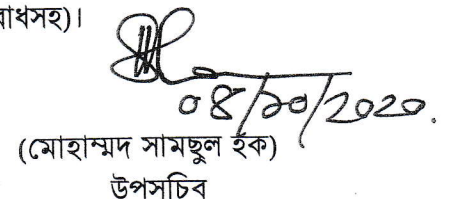 াধসহ)।
০৪/১০/২০২০.
(মোহাম্মদ সামছুল হক)
উপসচিব